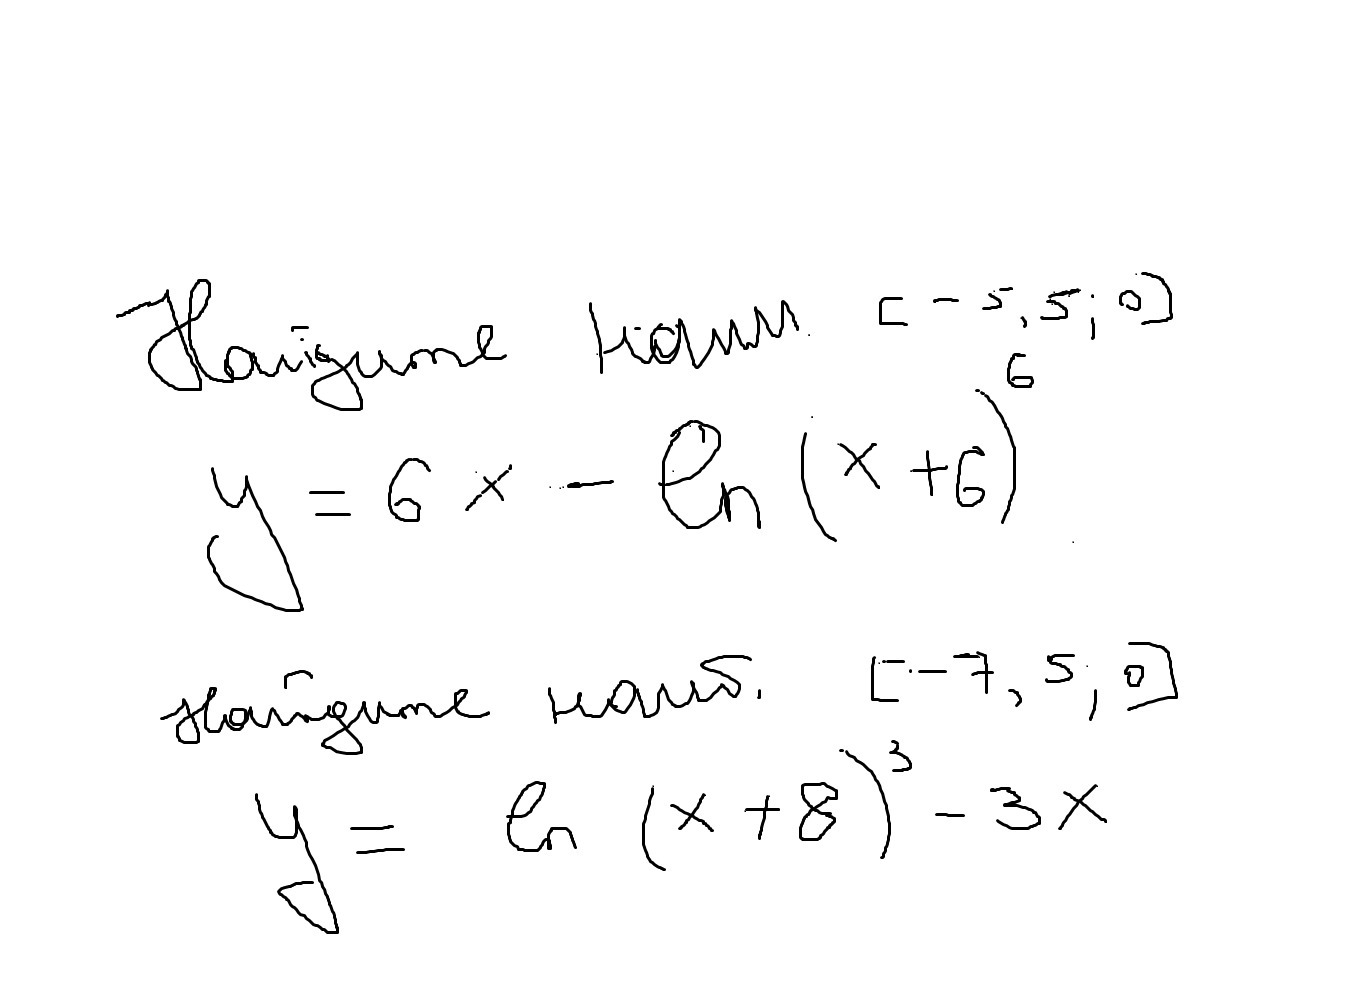 Найдите наим. [-5,5; 0]
y = 6x - ln(x+6)^6
найдите наиб. [-7,5; 0]
y = ln(x+8)^3 - 3x